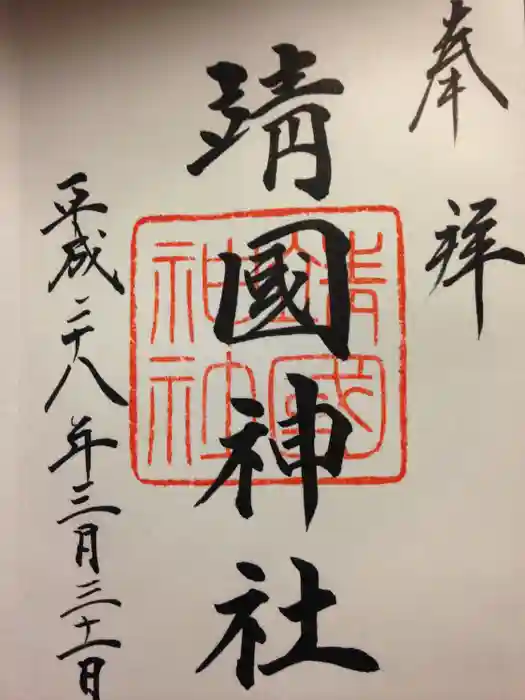 奉拝
靖國神社
平成二十八年三月三十一日
靖國神社